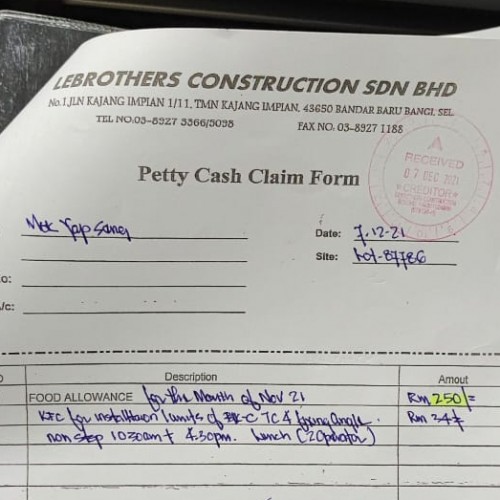 LEBROTHERS CONSTRUCTION SDN BHD
No.1, JLN KAJANG IMPIAN 1/11, TMN KAJANG IMPIAN, 43650 BANDAR BARU BANGI, SEL
TEL NO:03-8927 3366/5098
FAX NO: 03-8927 1188
A
RECEIVED
07 DEC 2021
*CREDITOR*
Petty Cash Claim Form
Mok Yap Sang
Date: 7.12-21
Site: Lot-87786
o:
/c:
Description
Amout
FOOD ALLOWANCE for the Month of Nov 21
Rm 250/=
KFC for installtaion of TC 4
Rm 34
non stop 1030am 4.30pm. Lunch (2Operator)